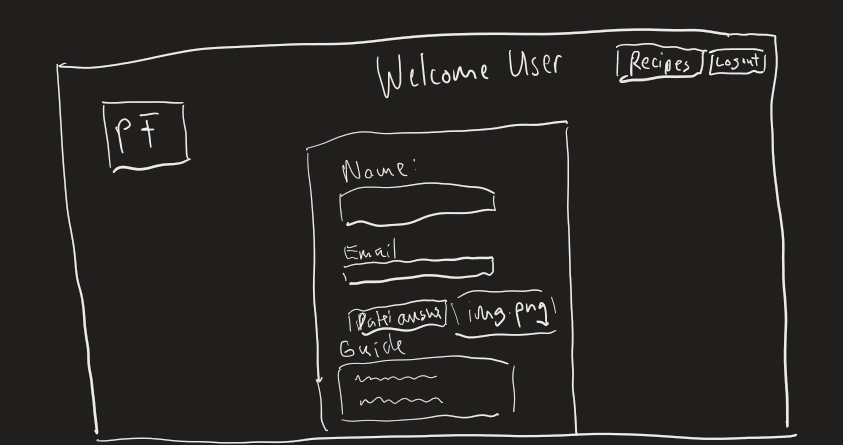 Welcome User
Recipes
Logout
PF
Name:
Email
Datei
img.png
Guide